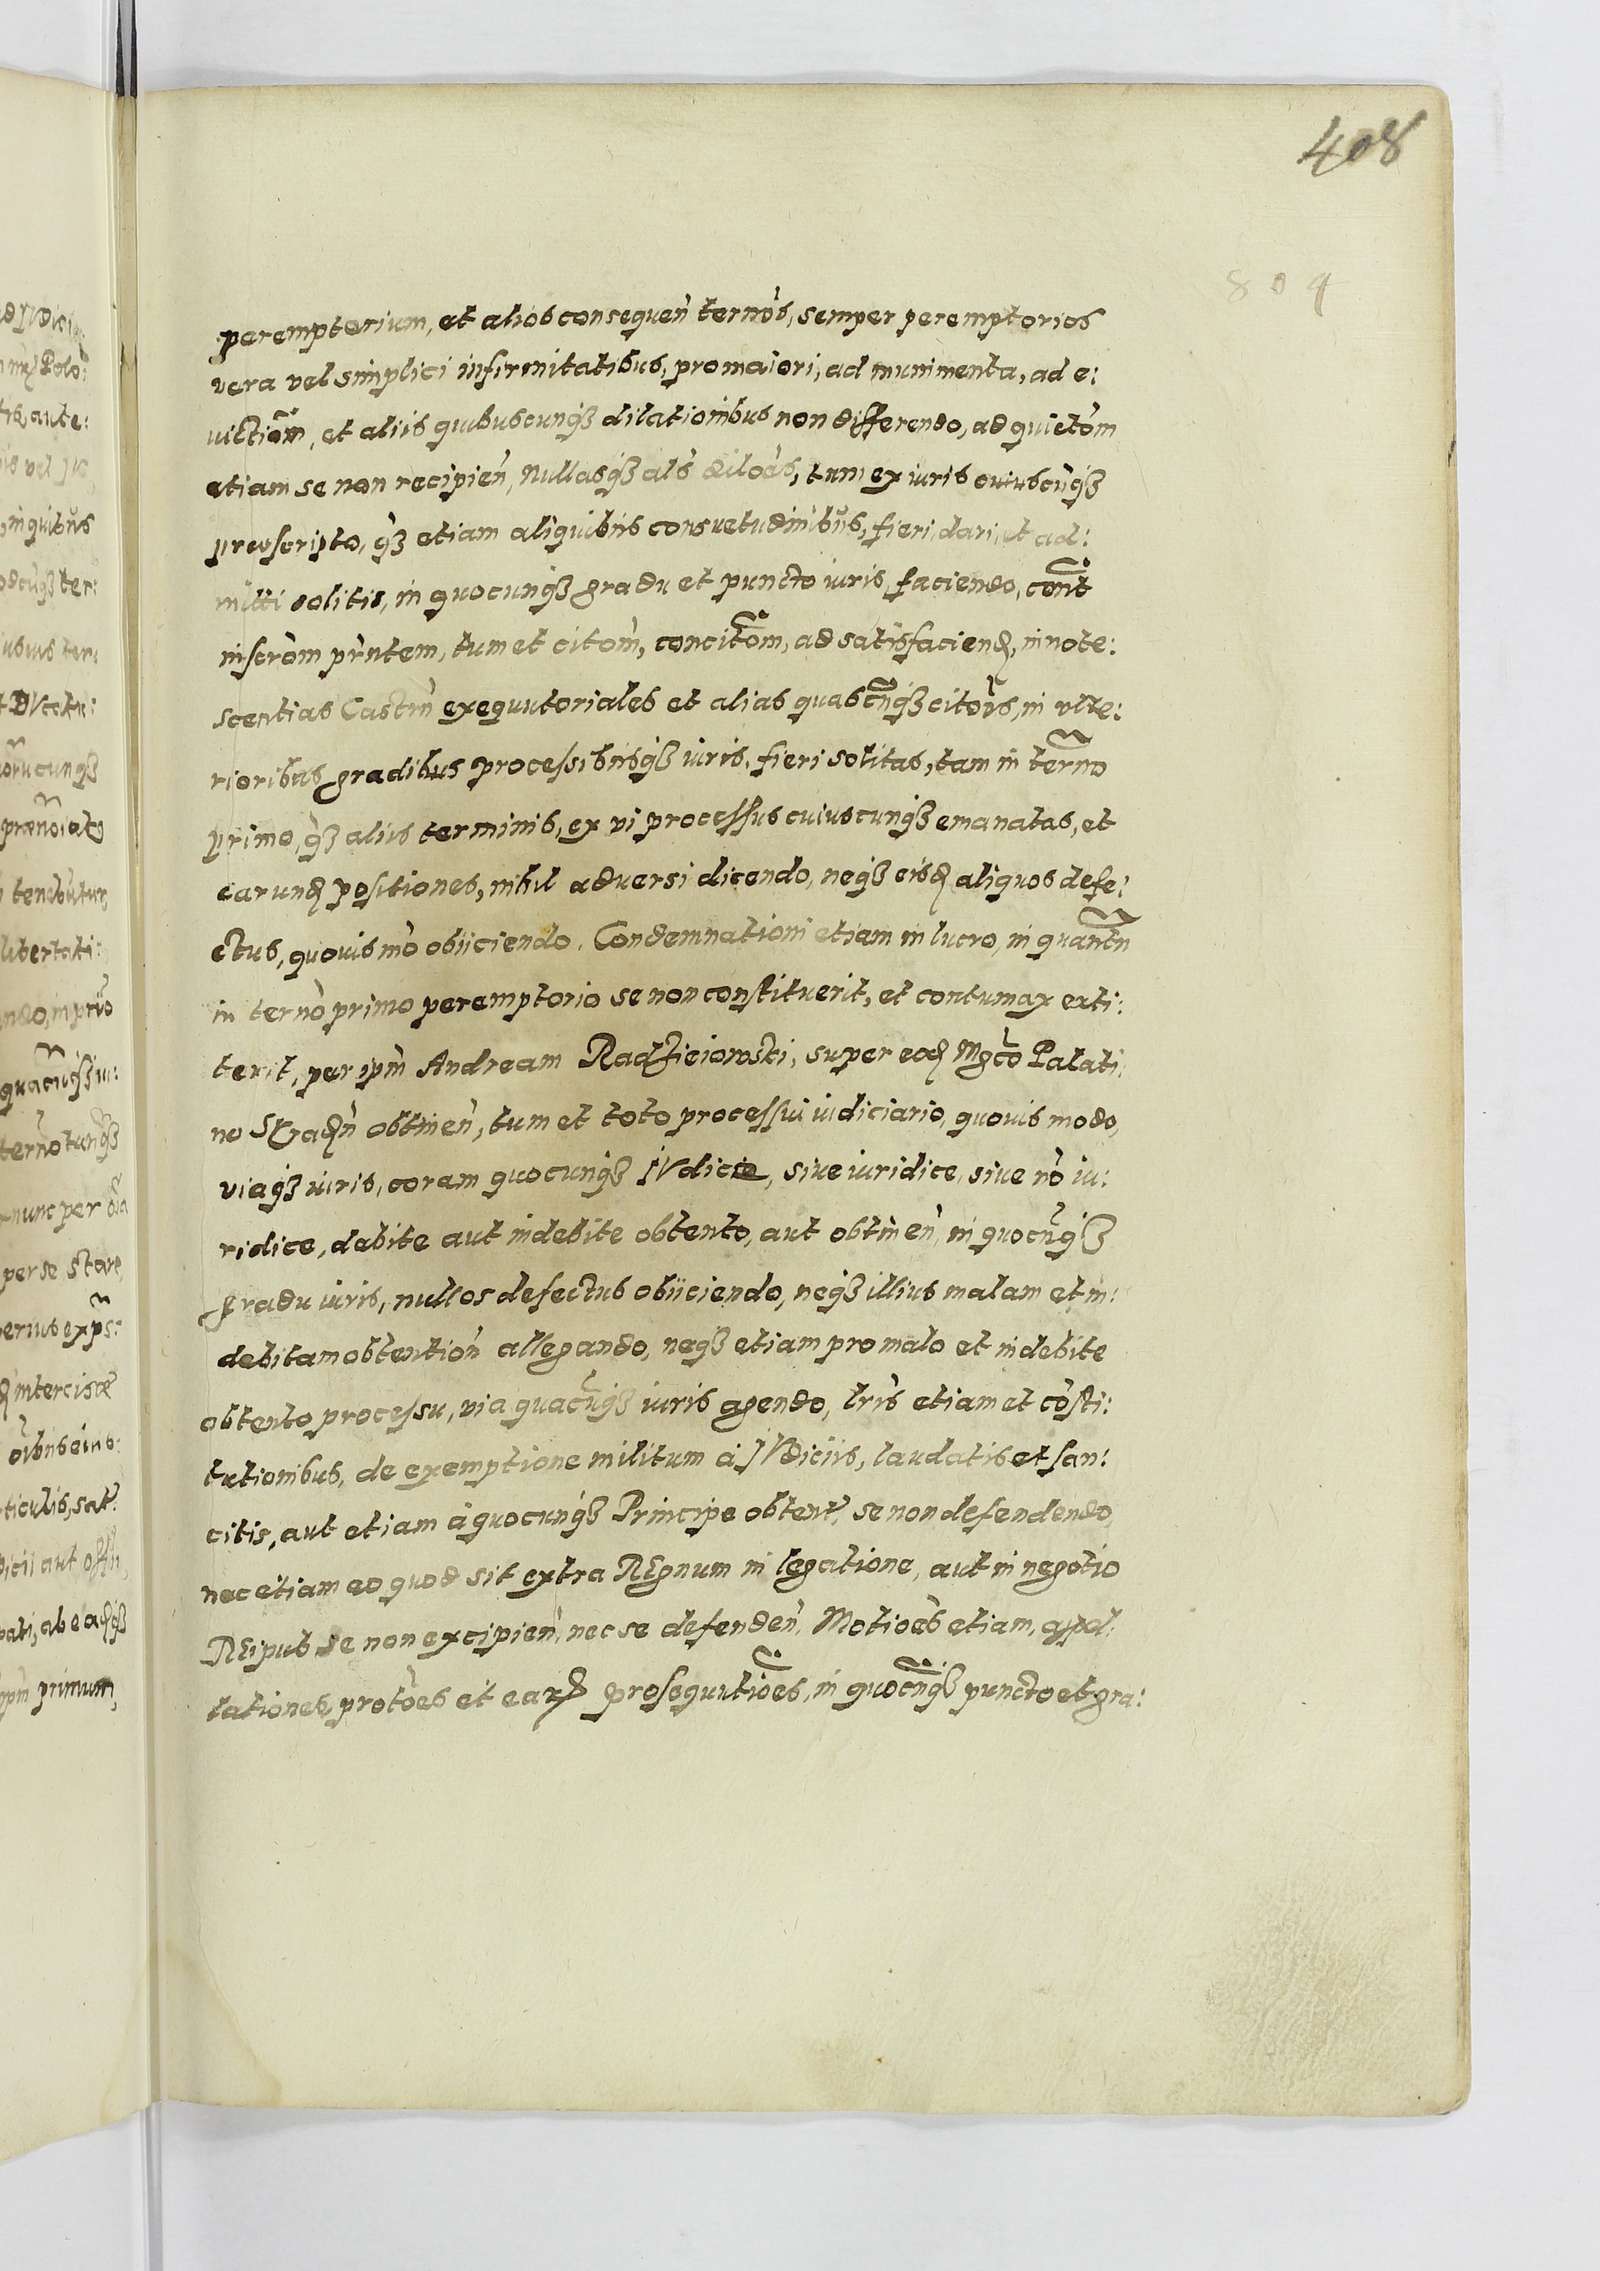 408
809
perempterium, et alios consequen̄ ternōs, semper peremptorios
vera vel simplici infirmitatibus, pro maiori, ad munimenta, ad e:
uictiōm, et aliis quibuscunqȝ dilationibus non differendo, ad quietōm
etiam se non recipien̄, Nullasqȝ als̄ diloēs, tum ex iuris cuiuscūqȝ
prescripto, qȝ etiam aliquibus consuetudinibus, fieri, dari, et ad:
mitti solitis, in quocunqȝ gradu et puncto iuris, faciendo, cont̄
inscrōm prn̄tem, tum et citom̄, concitōm, ad satisfaciend, innote:
scentias Castrn̄ exequutoriales et alias quascn̄qȝ citoēs, in vlte:
rioribus gradibus processibusqȝ iuris, fieri solitas, tam in tern̄o
primo, qȝ aliis terminis, ex vi processus cuiuscunqȝ emanatas, et
earund positiones, nihil aduersi dicendo, neqȝ eisd aliquos defe:
ctus, quouis mō obiiciendo. Condemnationi etiam in lucro, in quantn̄
in tern̄o primo peremptorio se non constituerit, et contumax exti:
terit, per ipm̄ Andream Radzieiowski, super eod Mgco Palati:
no obtinen̄, tum et toto processui iudiciario, quouis modo,
viaqȝ iuris, coram quocunqȝ iVdicie, siue iuridice, siue nō iu:
ridice, debite aut indebite obtento, aut obtinen̄, in quocn̄qȝ
gradu iuris, nullos defectus obiiciendo, neqȝ illius malam et in:
debitam obtention̄ allegando, neqȝ etiam pro malo et indebite
obtento processu, via quacn̄qȝ iuris agendo, lrīs etiam et cōsti:
tutionibus, de exemptione militum à IVdiciis, laudatis et san:
citis, aut etiam à quocunqȝ Principe obtent̄, se non defendendo,
nec etiam eo quod sit extra REgnum in legatione, aut in negotio
REipub se non excipien̄, nec se defenden̄, Motioēs etiam, appel:
lationes, protoēs et earꝝ prosequutiōes, in quocn̄qȝ puncto et gra: